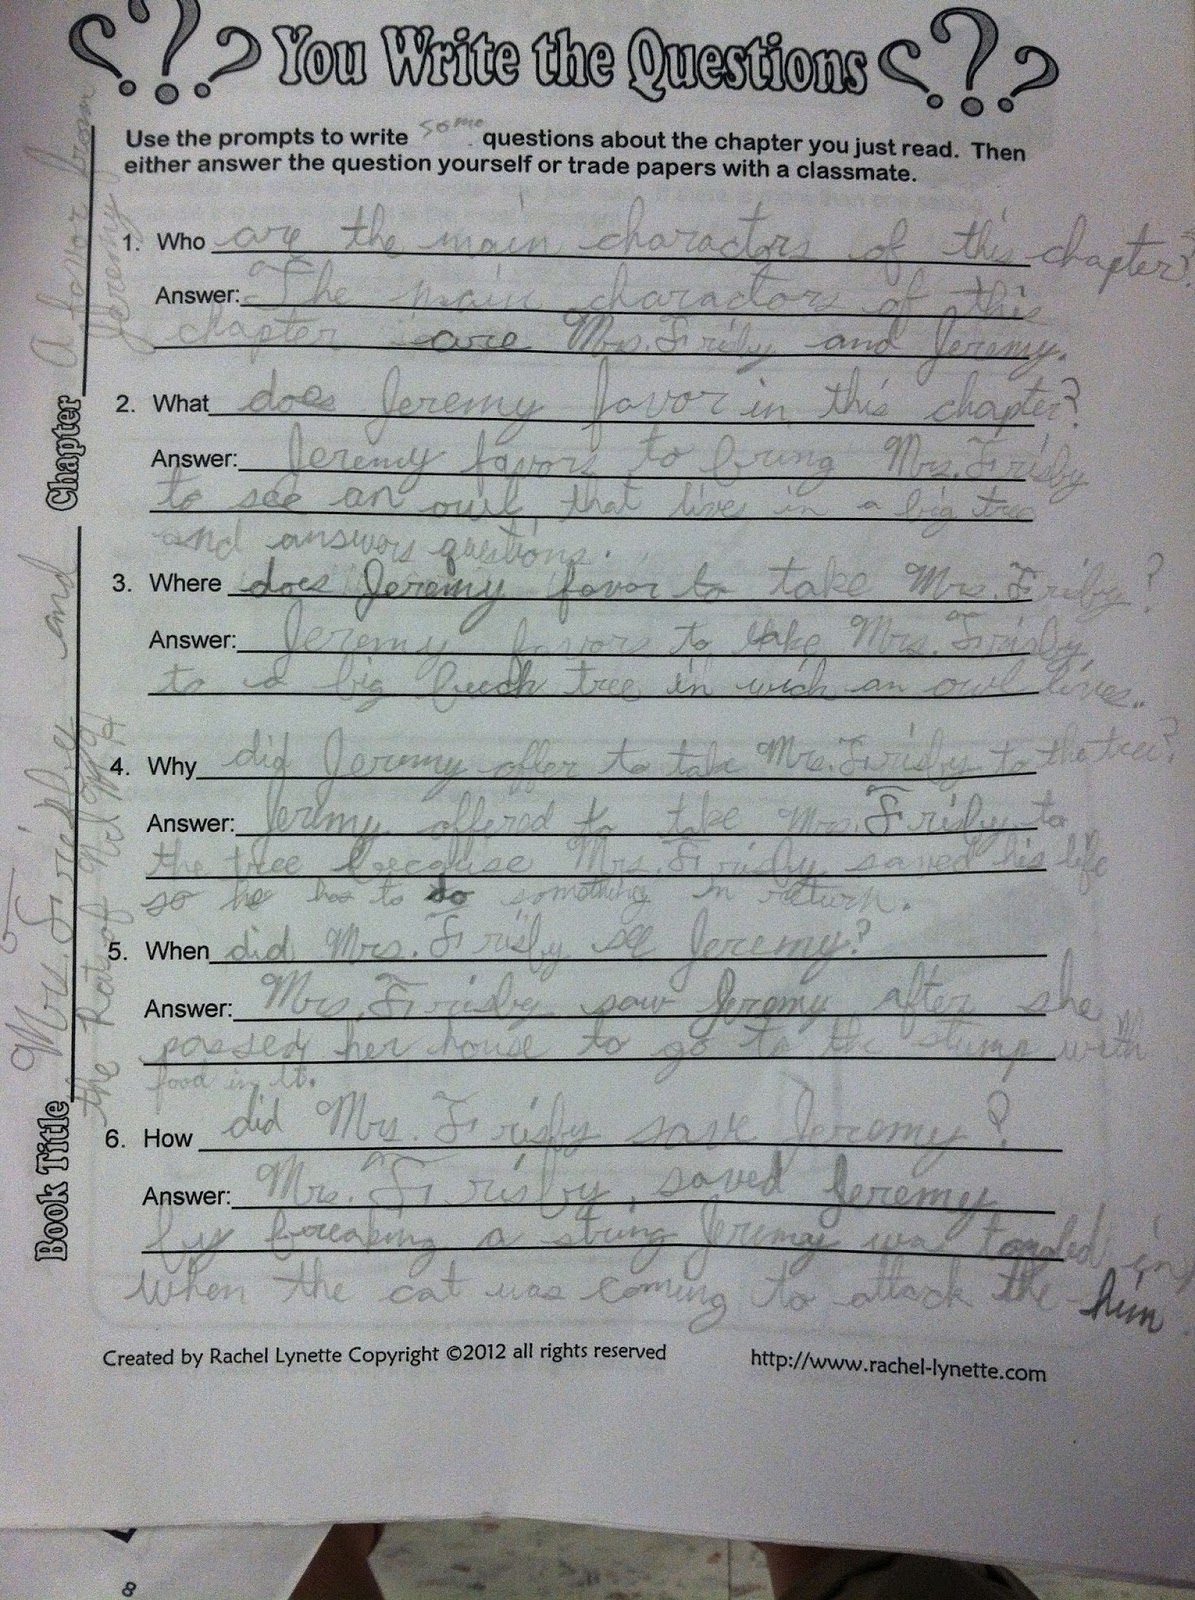 You Write the Questions
Use the prompts to write some questions about the chapter you just read. Then
either answer the question yourself or trade papers with a classmate.
1. Who are the main charactors of this chapter?
Answer: The main charactors of this
chapter are Mrs. Frisby and Jeremy.
2. What does Jeremy favor in this chapter?
Answer: Jeremy favors to bring Mrs. Frisby
to see an owl, that lives in a big tree
and answers questions.
3. Where does Jeremy favor to take Mrs. Frisby?
Answer: Jeremy favors to take Mrs. Frisby
to a big beech tree in wich an owl lives.
4. Why did Jeremy offer to take Mrs. Frisby to the tree?
Answer: Jeremy offered to take Mrs. Frisby to
the tree because Mrs. Frisby saved his life
so he has to do something in return.
5. When did Mrs. Frisby see Jeremy?
Answer: Mrs. Frisby saw Jeremy after she
passed her house to go to the stump with
food in it.
6. How did Mrs. Frisby save Jeremy?
Answer: Mrs. Frisby, saved Jeremy
by breaking a string Jeremy was tangled in
when the cat was coming to attack the him
Book Title Mrs. Frisby and
the Rat of
Chapter A favor from
Jeremy
Created by Rachel Lynette Copyright ©2012 all rights reserved
http://www.rachel-lynette.com
8